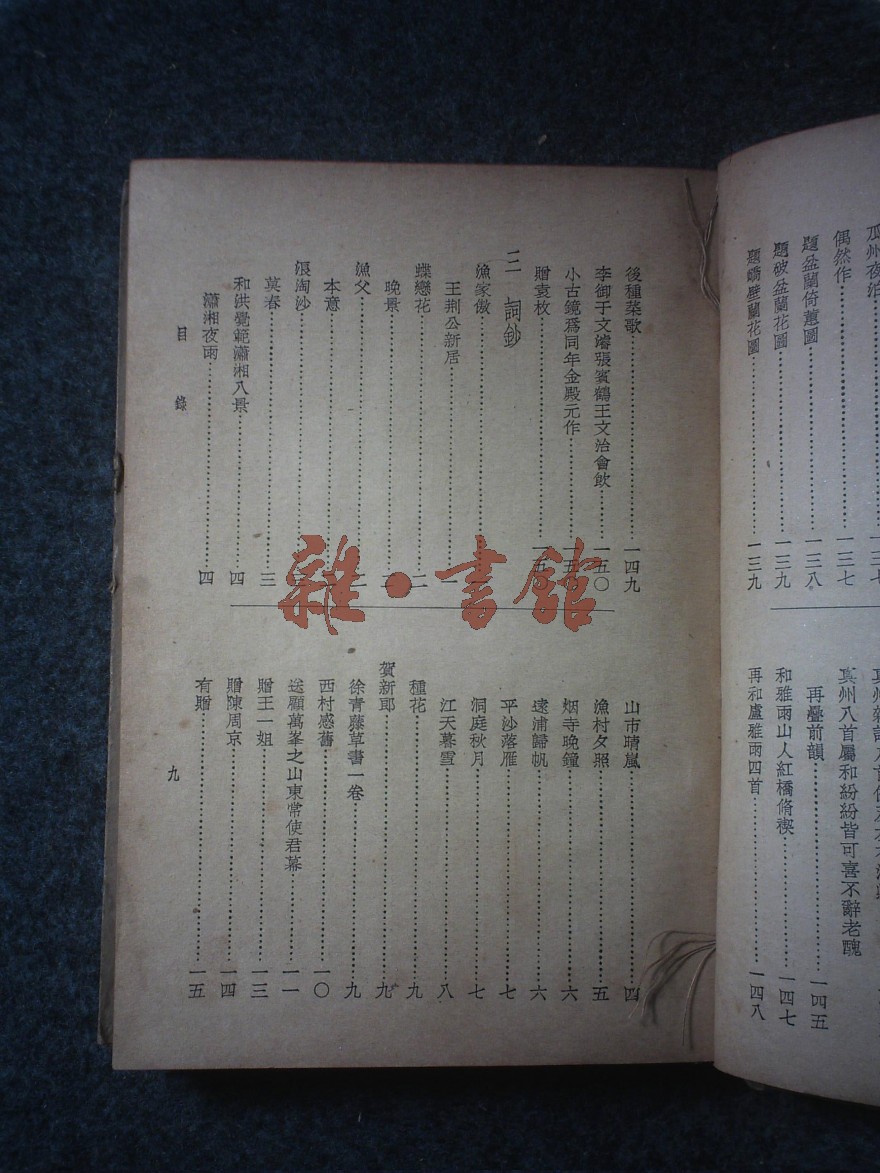 瓜州夜泊
偶然作⋯⋯一三七
題盆蘭倚蕙圖⋯⋯一三八
題破盆蘭花圖⋯⋯一三九
題嶠壁蘭花圖⋯⋯一三九
真州八首屬和紛紛皆可喜不辭老醜
再疊前韻⋯⋯一四五
和雅雨山人紅橋脩禊⋯⋯一四七
再和盧雅雨四首⋯⋯一四八
後種菜歌⋯⋯一四九
李御于文濬張賓鶴王文治會飲⋯⋯一五〇
小古鏡爲同年金殿元作⋯⋯一五
贈袁枚⋯⋯一五
三 詞鈔
漁家傲
王荆公新居⋯⋯一
蝶戀花⋯⋯二
晚景
漁父
本意
浪淘沙
莫春⋯⋯三
和洪覺範瀟湘八景⋯⋯四
瀟湘夜雨⋯⋯四
山市晴嵐⋯⋯四
漁村夕照⋯⋯五
烟寺晚鐘⋯⋯六
遠浦歸帆⋯⋯六
平沙落雁⋯⋯七
洞庭秋月⋯⋯七
江天暮雪⋯⋯八
種花⋯⋯九
賀新郎⋯⋯九
徐青藤草書一卷⋯⋯九
西村感舊⋯⋯一〇
送顧萬峯之山東常使君幕⋯⋯一一
贈王一姐⋯⋯一三
贈陳周京⋯⋯一四
有贈⋯⋯一五
目錄
九
雜·書館